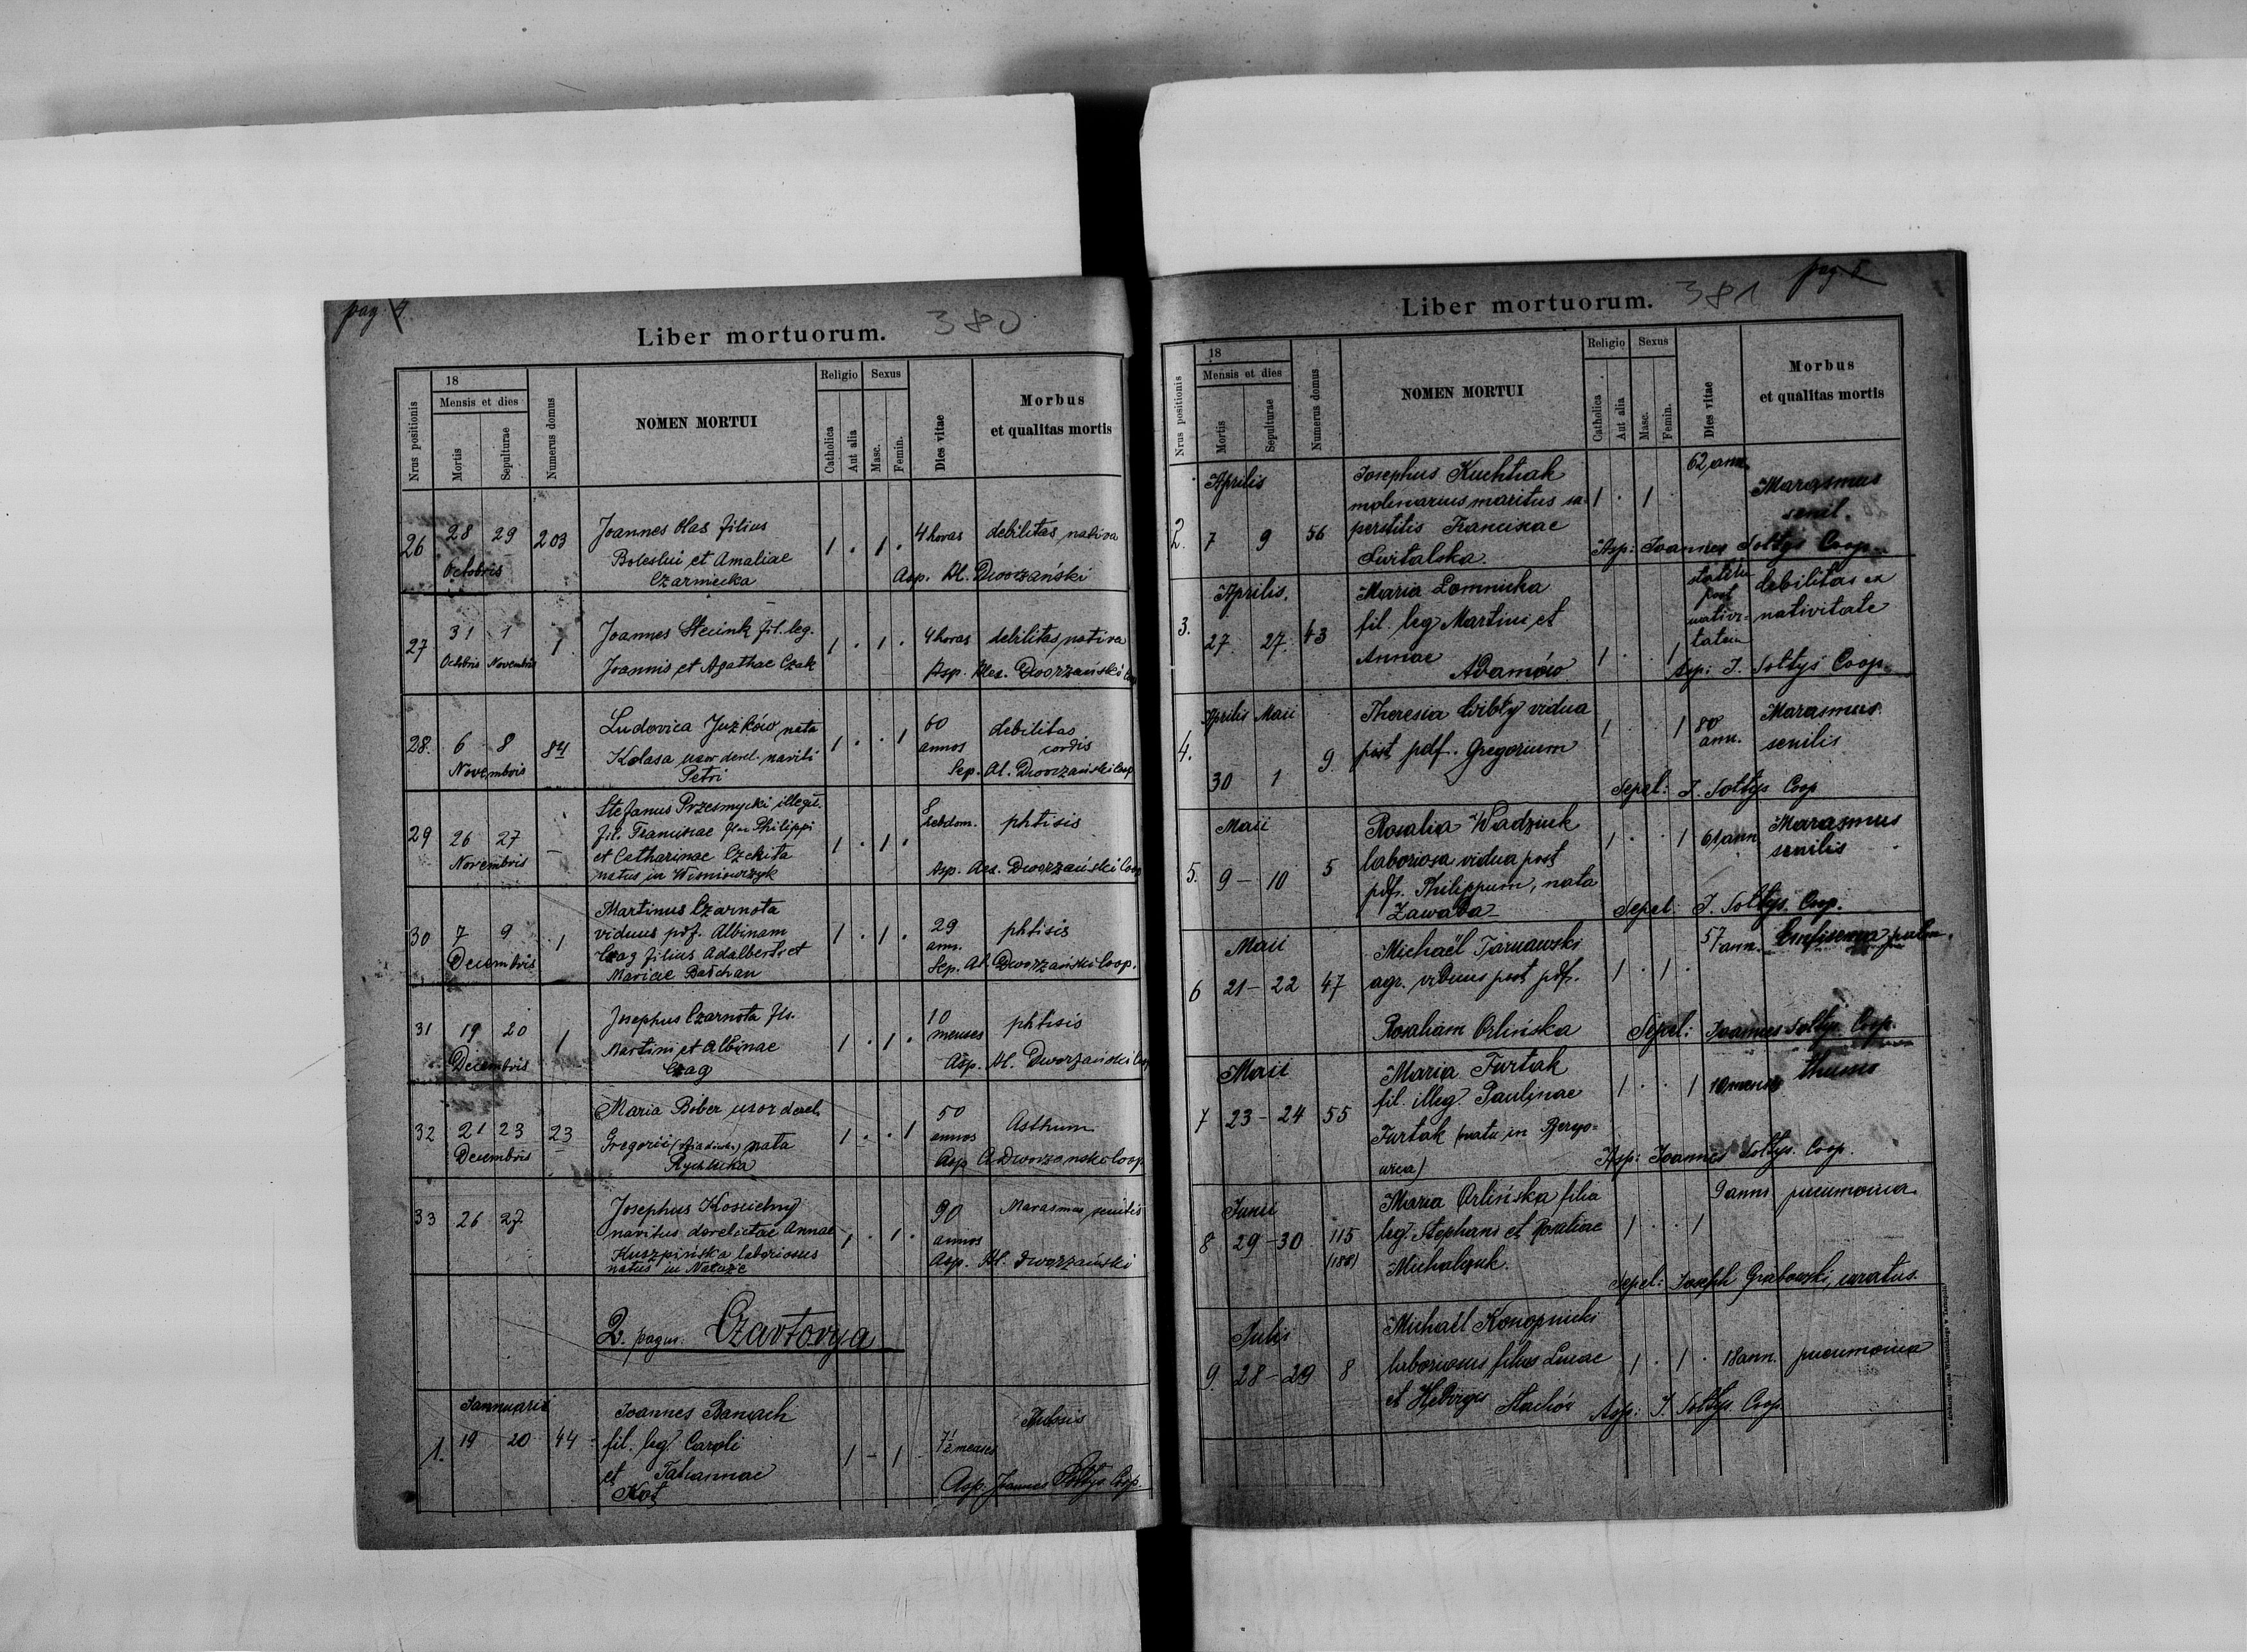 pag 4.
Liber mortuorum. 380
Nrus positionis
18
Mensis et dies
Mortis
Sepulturae
Numerus domus
NOMEN MORTUI
Religio
Catholica
Aut alia
Sexus
Masc.
Femin.
Dies vitae
Morbus
et qualitas mortis
26 28 29 203 Joannes Olas filius 1 . 1 . 4 horas debilitas nativa
Octobris Boleslai et Amaliae
Czarniecka Asp. Al. Dworzański
27 31 1 1 Joannes Steciuk fil. leg. 1 . 1 . 4 horas debilitas nativa
Octobris Novembris Joannis et Agathae Czak Asp. Alex. Dworzański Coop
28. 6 8 84 Ludovica Juzków nata 1 . . 1 60 annos debilitas cordis
Novembris Kolasa uxor derel. mariti
Petri Sep. Al. Dworzański Coop
29 26 27 – Stefanus Przesmycki illegit. 1 . 1 . 8 hebdom. phtisis
Novembris fil. Franciscae filiae Philippi
et Catharinae Czekita
natus in Wiśniowczyk Asp. Alex. Dworzański Coop
30 7 9 1 Martinus Czarnota 1 . 1 . 29 ann. phtisis
Decembris viduus pdf. Albinam
Czag filius Adalberti et
Mariae Bachan Sep. Al. Dworzański Coop.
31 19 20 1 Josephus Czarnota fils. 1 . 1 . 10 menses phtisis
Decembris Martini et Albinae
Czag Asp. Al. Dworzański Coop
32 21 23 23 Maria Bober uxor derel. 1 . . 1 50 annos Asthum
Decembris Gregorii nata
Rychlicka Asp A Dworzański Coop
33 26 27 Josephus Kosciechny 1 . 1 . 90 annos Marasmus senilis
maritus derelictae Annae
Kuszpińska laboriosus
natus in Asp. Al. Dworzański
2. pagus. Czartorya
Jannuarii
1. 19 20 44 Joannes Banach 1 – 1 – 7½ menses Tussis
fil. leg. Caroli
et Tatiannae
Kot Asp. Joannes Sołtys Coop.
pag 5
Liber mortuorum. 381
Nrus positionis
18
Mensis et dies
Mortis
Sepulturae
Numerus domus
NOMEN MORTUI
Religio
Catholica
Aut alia
Sexus
Masc.
Femin.
Dies vitae
Morbus
et qualitas mortis
Aprilis
2. 7 9 56 Josephus Kuchtiak 1 . 1 . 62 ann. Marasmus senil.
molinarius maritus su-
perstitis Franciscae
Świtalska. Asp: Joannes Sołtys Coop.
Aprilis.
3. 27. 27. 43 Maria Łomnicka 1 . . 1 statim post nativi-tatem debilitas ex nativitate
fil. leg. Martini et
Annae
Adamów Asp: J. Sołtys Coop.
Aprilis Maii
4. 30 1 9. Theresia Cibły vidua 1 . . 1 80 ann. Marasmus senilis
post pdf. Gregorium
Sepel: J. Sołtys Coop
Maii
5. 9 – 10 5 Rosalia Wadziuk 1 . . 1 61 ann Marasmus senilis
laboriosa vidua post
pdf. Philippum, nata
Zawada Sepel: J. Sołtys. Coop.
Maii
6 21 – 22 47 Michaël Tarnawski 1 . 1 . 57 ann. Emfisema pulm.
agr. viduus post pdf.
Rosaliam Orlińska Sepel: Joannes Sołtys Coop.
Maii
7 23 – 24 55 Maria Furtak 1 . . 1 10 mens thusis
fil. illeg. Paulinae
Furtak (nata in Bergo=
urea) Asp: Joannes Sołtys. Coop.
Junii
8 29 – 30 115 Maria Orlińska filia 1 . . 1 9 anni pneumonia
leg. Stephani et Rosaliae
Michalczuk. Sepel: Joseph Grabowski, curatus.
Julii
9. 28 – 29 8 Michaël Konopnicki 1 . 1 . 18 ann. pneumonia
laboriosus filius Lucae
et Hedvigis Stachów Asp: J. Sołtys. Coop.